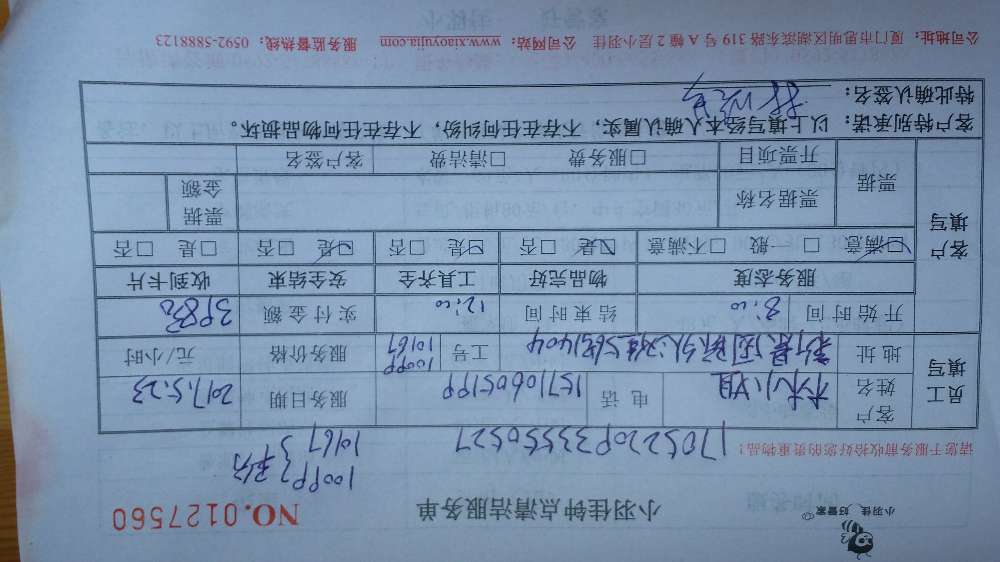 小羽佳 好管家
小羽佳钟点清洁服务单
NO.0127560
请您于服务前收拾好您的贵重物品!
10167 3
员工填写
客户姓名 林小姐 电话 15710605199 服务日期 2017.5.23
地址 工号 10099 10167 服务价格 元/小时
开始时间 8:00 结束时间 12:00 实付金额
客户填写
服务态度 物品完好 工具齐全 安全结束 收到卡片
☑满意 □一般 □不满意 ☑是 □否 ☑是 □否 ☑是 □否 □是 □否
票据 票据名称 票据金额
开票项目 □服务费 □清洁费 客户签名
客户特别承诺:以上填写经本人确认属实,不存在任何纠纷,不存在任何物品损坏。
特此确认签名:
公司地址:厦门市思明区湖滨东路 319 号 A 幢 2 层小羽佳 公司网站:www.xiaoyujia.com 服务监督热线:0592-5888123